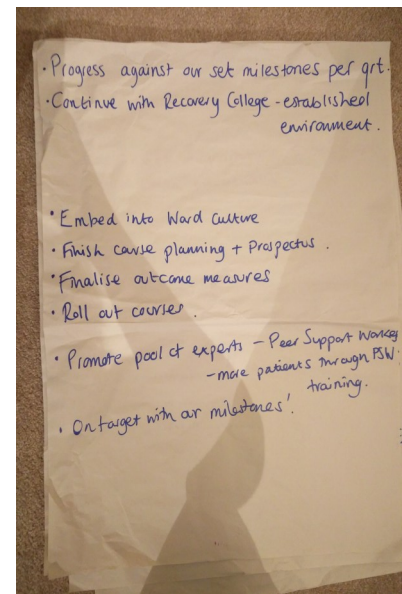 · Progress against our set milestones per qrt.
· Continue with Recovery College - established
environment.
· Embed into Ward Culture
· Finish course planning + Prospectus.
· Finalise outcome measures
· Roll out courses.
· Promote pool of experts - Peer Support Workers
- more patients through PSW
training.
· On target with our milestones!